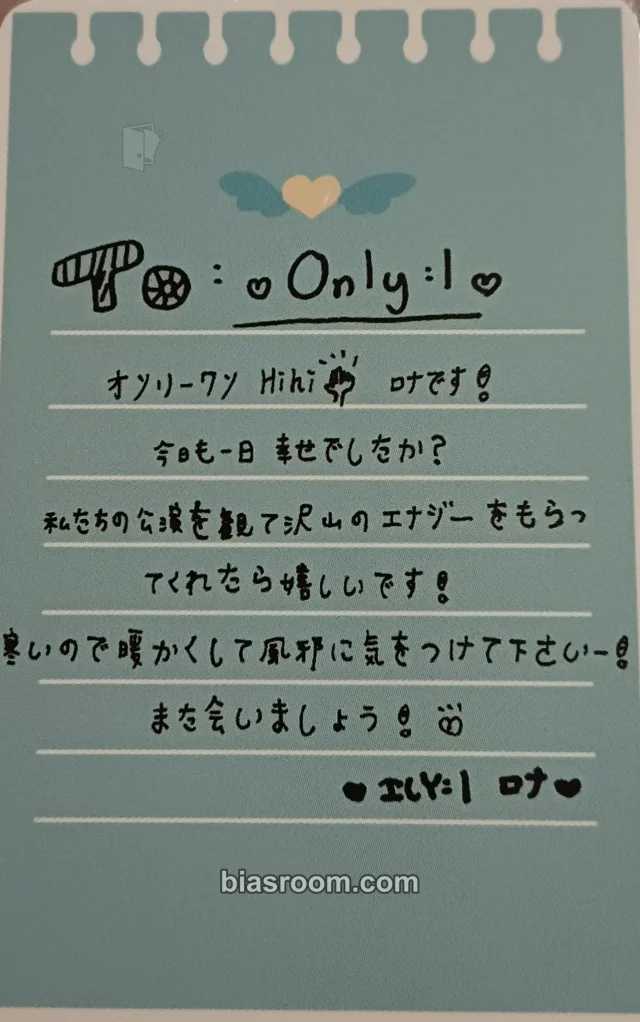 To: ♡ Only:1 ♡
オンリーワン Hihi ロナです！
今日も一日 幸せでしたか?
私たちの公演を観て沢山のエナジーをもらっ
てくれたら嬉しいです！
寒いので暖かくして風邪に気をつけて下さいー！
また会いましょう！
♥ ILY:1 ロナ♥
biasroom.com